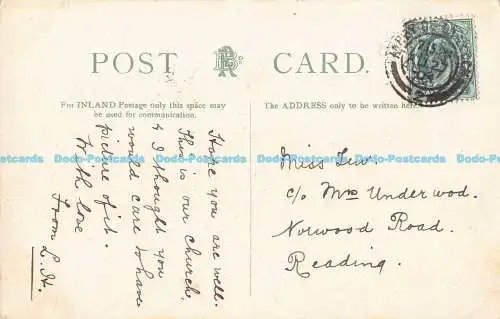 POST CARD.
For INLAND Postage only this space may
be used for communication.
The ADDRESS only to be written here.
Hope you are well.
This is our church,
& I thought you
would care to have
picture of it.
With love
From L. H.
Miss
c/o Mrs Underwood.
Norwood Road.
Reading.
Dodo-Postcards Dodo-Postcards Dodo-Postcards Dodo-Postcards Dodo-Postcards Dodo-Postcards